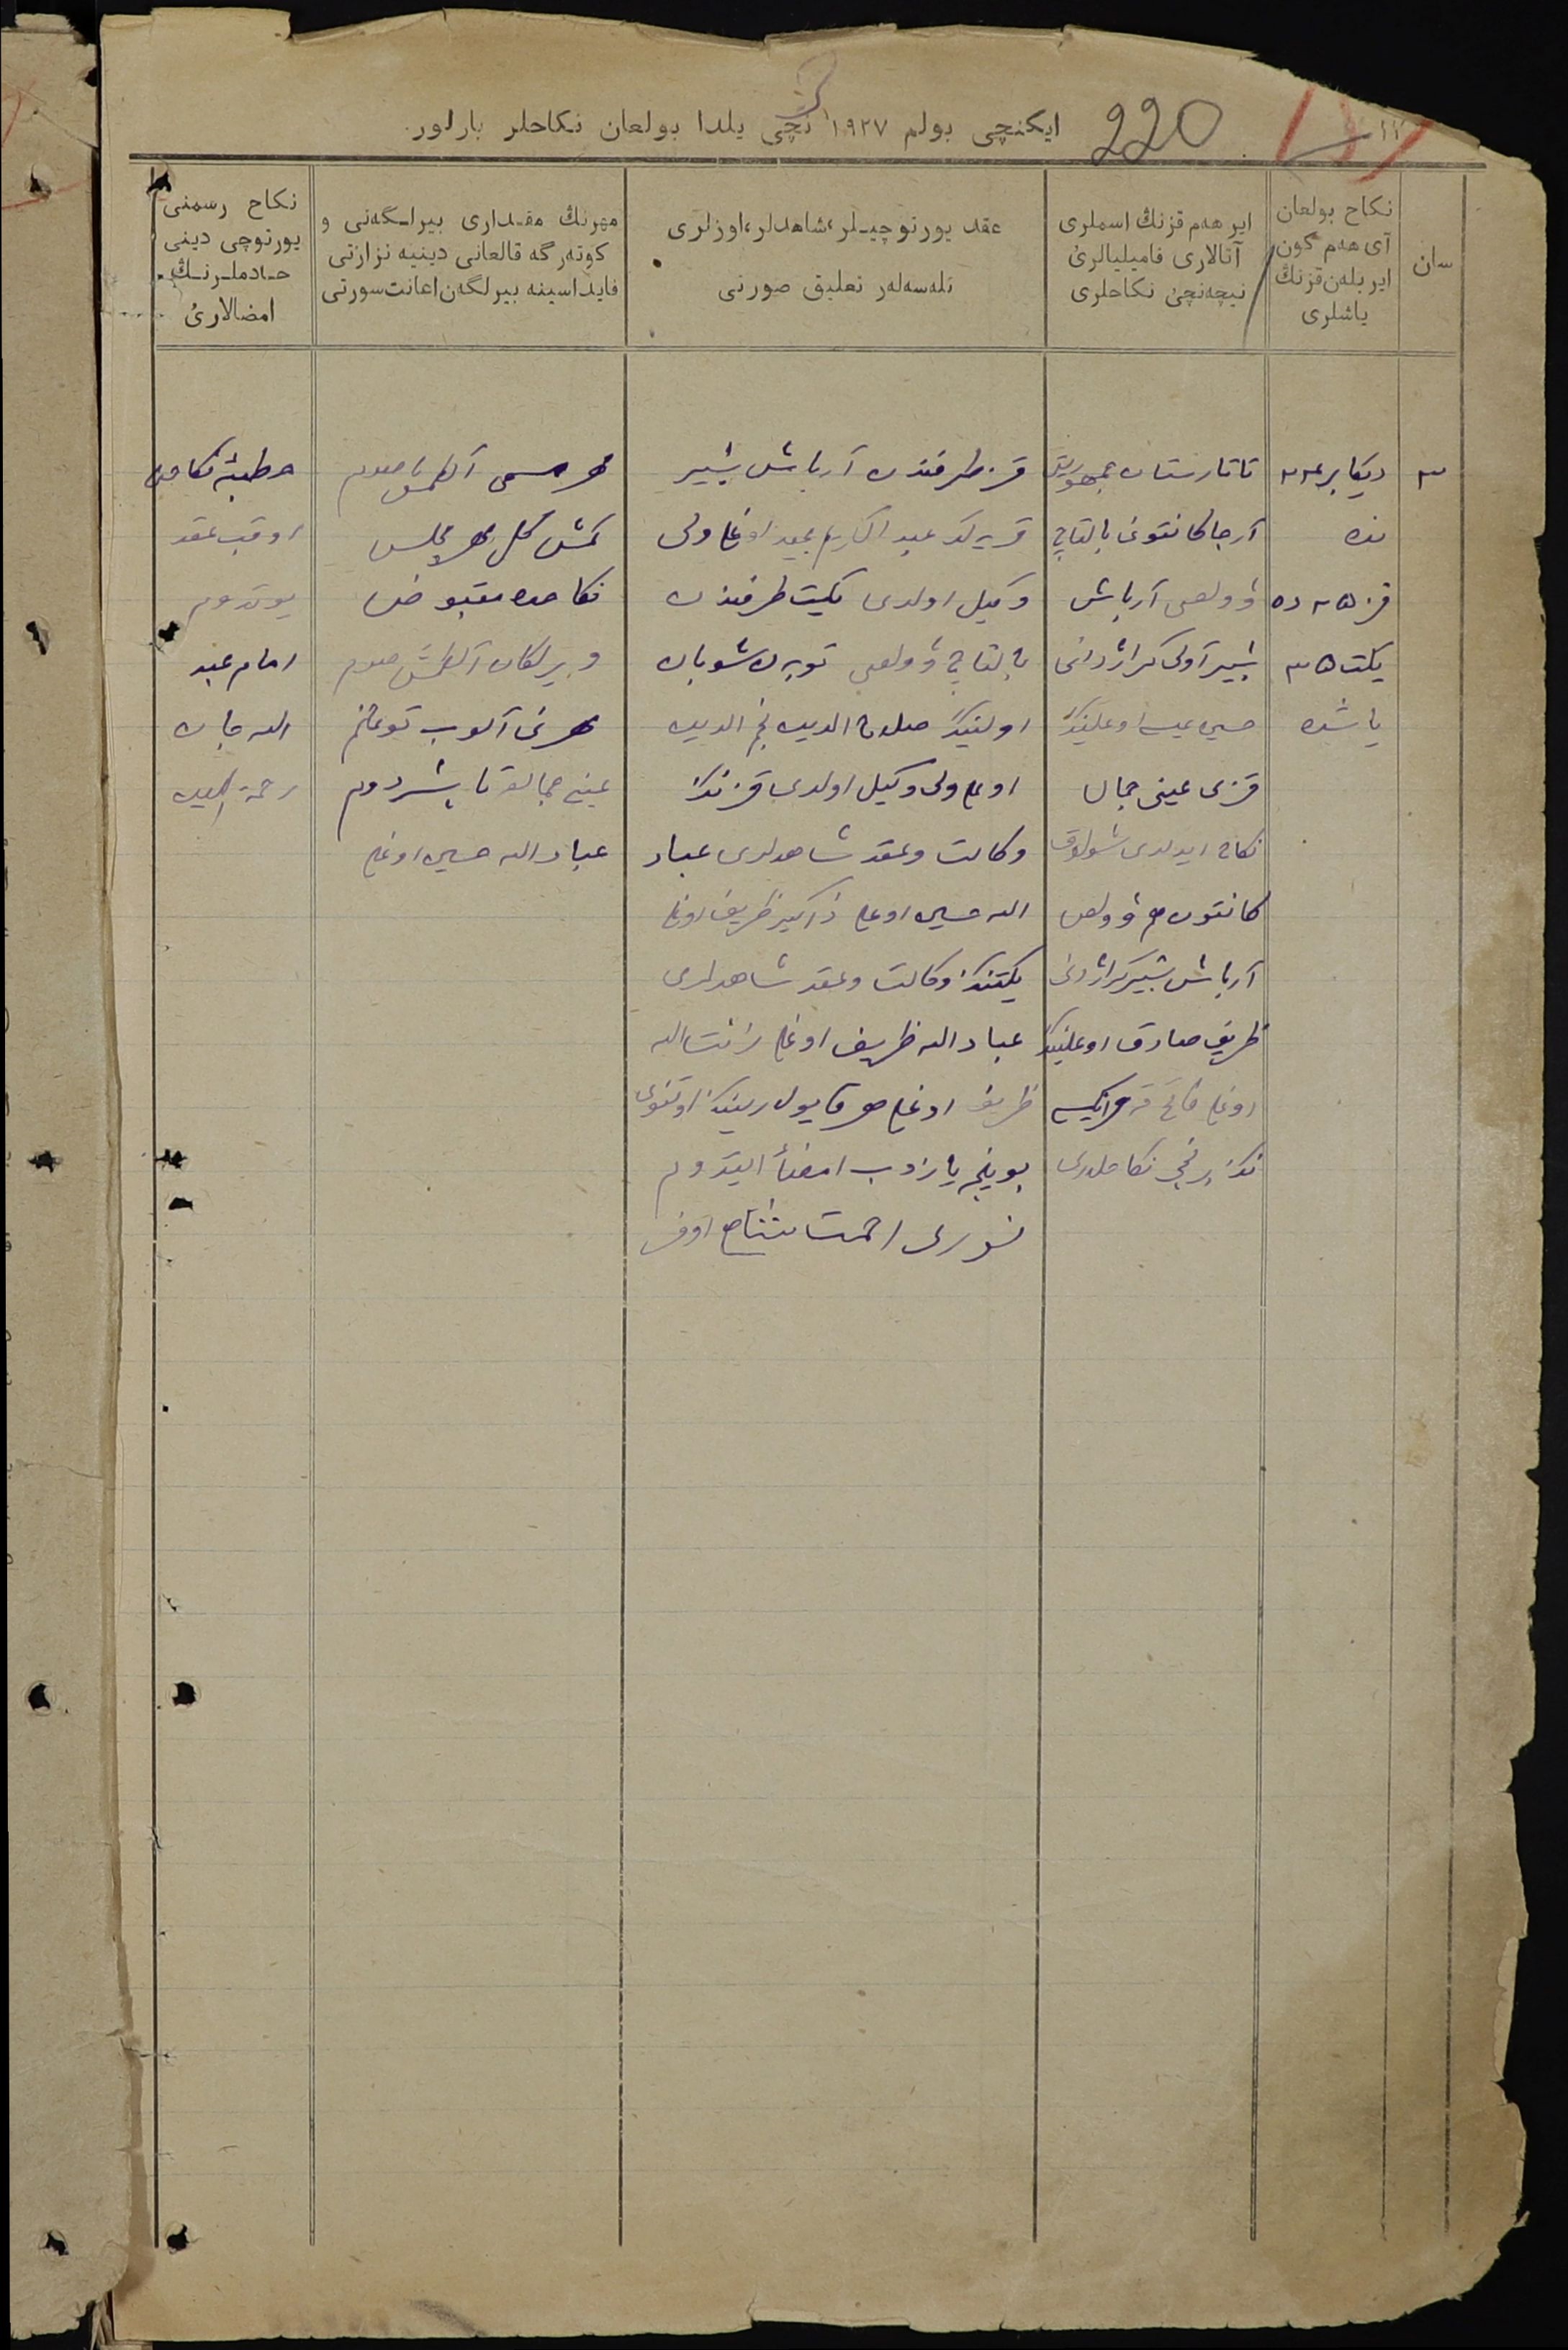 ایکنچی بولم ۱۹۲۷ نچی یلدا بولعان نکاحلر بارلور.
220
سان
نکاح بولعان
آی هەم کون
ایر بلەن قزنڭ
یاشلری
ایر هەم قزنڭ اسملری
آتالاری فامیلیالرئ
نیچەنچئ نکاحلری
عقد یورتوچیلر، شاهدلر، اوزلری
تلەسەلەر تعلیق صورتی
مهرنڭ مقداری بیرلگەنی و
کوتەرگە قالعانی دینیه نزارتی
فایداسینه بیرلگەن اعانت سورتی
نکاح رسمنی
یورتوچی دینی
خادملرنڭ
امضالارئ
۳
دیکابر ۲۴
نده
قز ۲۵ ده
یکت ۳۵
یاشده
تاتارستان جمهوریتی
آرچا کانتونی بالتاچ
وولصی آرباش
بشیر آولی گراژدانی
حسین عیسی اوعلینڭ
قزی عینی جمال
نکاح ایدلدی شولوق
کانتون هم وولص
آرباش بشیر گراژدانی
ظریف صادق اوعلینڭ
اوغلی
نڭ برنچی نکاحلری
قز طرفندن آرباش بشیر
قریه‌لڭ عبد الکریم عبید اوغلی ولی
وکیل اولدی یکیت طرفندن
بالتاچ وولصی توبەن شوبان
اولینڭ صلاح الدین نجم الدین
اوغلی ولی وکیل اولدی قزنڭ
وکالت و عقد شاهدلری عباد
الله حسین اوغلی ذاکیر ظریف اوغلی
یکتنڭ وکالت و عقد شاهدلری
عباد الله ظریف اوغلی
ظریف اوغلی هر قایولرینڭ اوتنوی
بوینچه یازوب امضأ ایتدوم
نوری احمت
مهر مسمی آلطمش صوم
نکاحده مقبوض
و بیرلگان آلطمش صوم
مهرنی آلوب توعانم
عینی جمالغه تابشردوم
عباد الله حسین اوغلی
خطبهٔ نکاحنی
اوقب عقد
یورتدوم
امام عبد
الله جان
رحمة الله